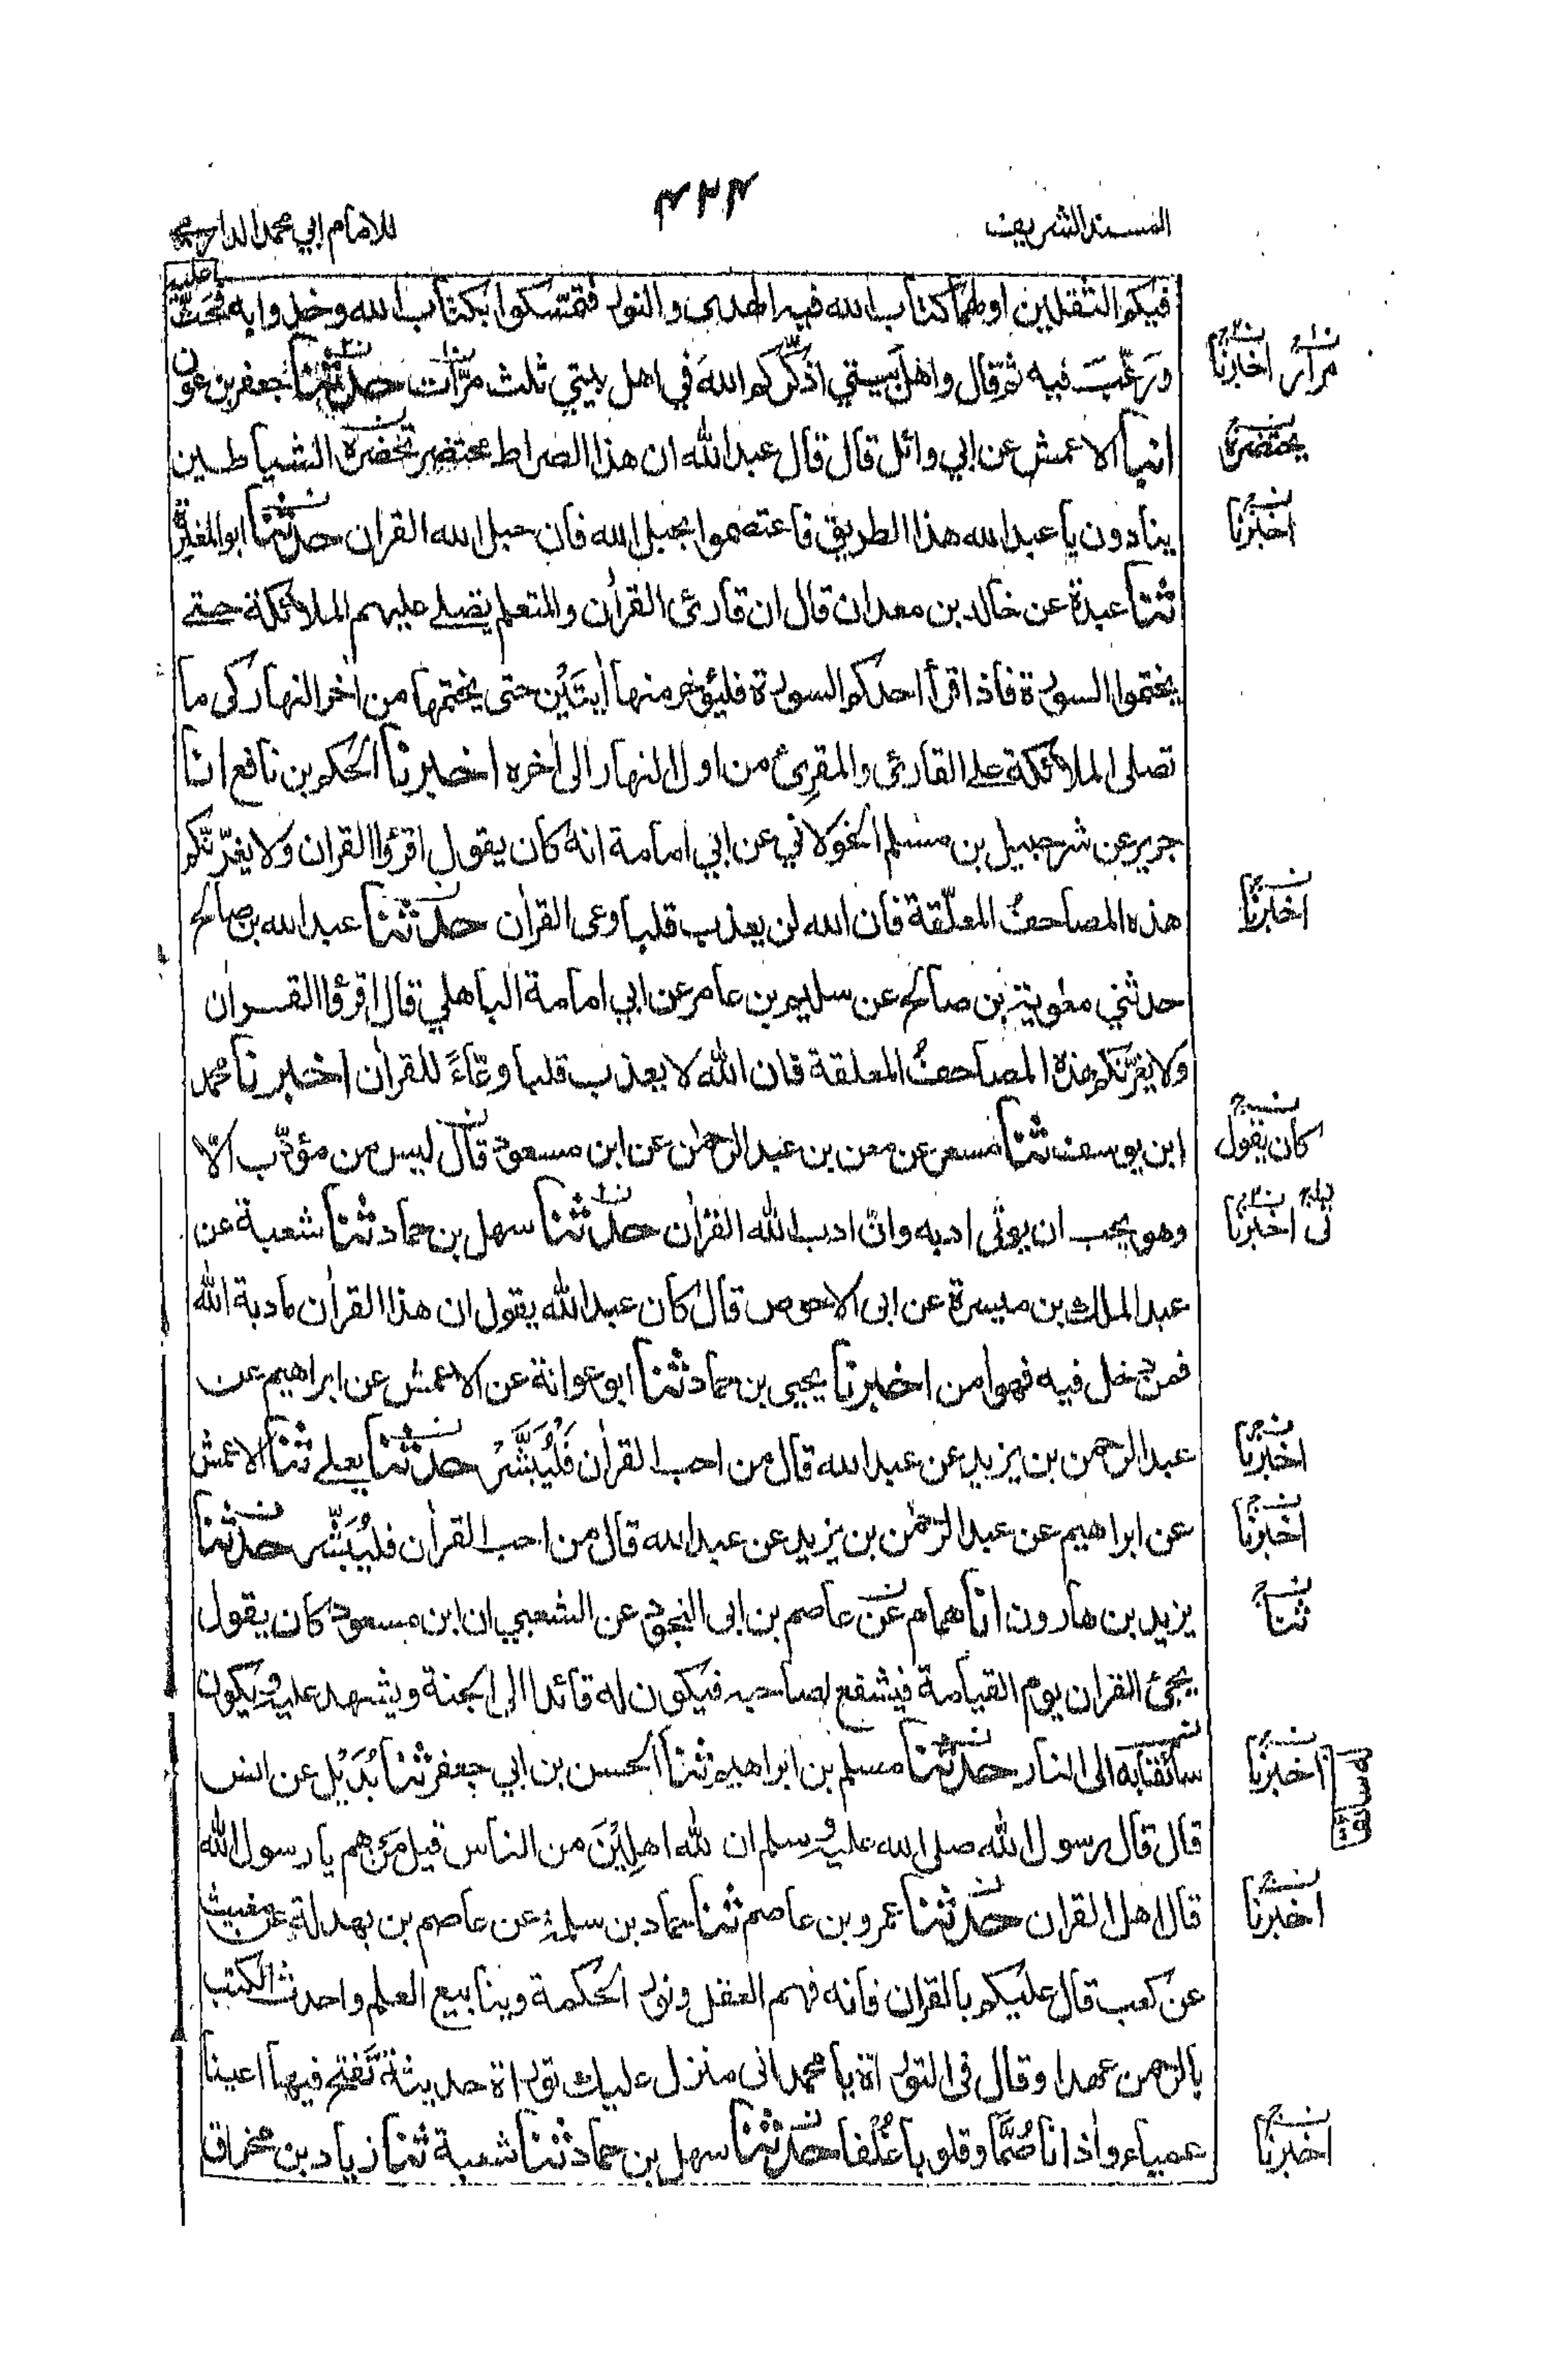 المسند الشريف
٤٢٤
للامام ابي محمد الدارمي
عليه
فيكم الثقلين اولهما كتاب الله فيه الهدى والنور فتمسكوا بكتاب الله وخذوا به فحث
ورغّب فيه ثم قال واهل بيتي اذكّركم الله في اهل بيتي ثلث مرّات حدثنا جعفر بن عون
انبأ الاعمش عن ابي وائل قال قال عبد الله ان هذا الصراط محتضر تحضره الشياطين
ينادون يا عبد الله هذا الطريق فاعتصموا بحبل الله فان حبل الله القران حدثنا ابو المغيرة
ثنا عبدة عن خالد بن معدان قال ان قارئ القرأن والمتعلم يصلي عليهم الملائكة حتى
يختموا السورة فاذا اقرأ احدكم السورة فليؤخر منها أيتَيْن حتى يختمها من أخر النهار كى ما
تصلى الملائكة على القارئ والمقرِئ من اول النهار الى أخره اخبرنا الحكم بن نافع انا
جرير عن شرحبيل بن مسلم الخولاني عن ابي امامة انه كان يقول اقرؤا القران ولا يغرّنّكم
هذه المصاحفُ المعلّقة فان الله لن يعذب قلبا وعى القرأن حدثنا عبد الله بن صالح
حدثني معٰوية بن صالح عن سليم بن عامر عن ابي امامة الباهلي قال اقرؤا القرأن
ولا يغرّنّكم هذه المصاحفُ المعلقة فان الله لا يعذب قلبا وعَاءً للقرأن اخبرنا محمد
ابن يوسف ثنا مسعر عن معن بن عبد الرحمٰن عن ابن مسعود قال ليس من مؤدّب الّا
وهو يحب ان يؤتى ادبه وانّ ادب الله القرأن حدثنا سهل بن حماد ثنا شعبة عن
عبد الملك بن ميسرة عن ابى الاحوص قال كان عبد الله يقول ان هذا القرأن مادبة الله
فمن دخل فيه فهو أمن اخبرنا يحيى بن حماد ثنا ابو عوانة عن الاعمش عن ابراهيم عن
عبد الرحمن بن يزيد عن عبد الله قال من احب القرأن فَلْيُبَشَّرْ حدثنا يعلى ثنا الاعمش
عن ابراهيم عن عبد الرحمٰن بن يزيد عن عبد الله قال من احب القرأن فليُبَشَّر حدثنا
يزيد بن هارون انا همام عن عاصم بن ابى النجود عن الشعبي ان ابن مسعود كان يقول
يجئ القران يوم القيامة فيشفع لصاحبه فيكون له قائدا الى الجنة ويشهد عليه ويكون
سائقا به الى النار حدثنا مسلم بن ابراهيم ثنا الحسن بن ابي جعفر ثنا بُدَيْل عن انس
قال قال رسول الله صلى الله عليه وسلم ان لله اهلِيْنَ من الناس قيل مَن هم يا رسول الله
قال اهل القران حدثنا عمرو بن عاصم ثنا حماد بن سلمة عن عاصم بن بهدلة عن مغيث
عن كعب قال عليكم بالقران فانه فهم العقل ونور الحكمة وينابيع العلم واحدث الكتب
بالرحمن عهدا وقال فى التوراة يا محمد انى منزل عليك توراة حديثة تَفتح فيها اعينا
عمياء وأذانا صُمًّا وقلوبا غُلْفا حدثنا سهل بن حماد ثنا شعبة ثنا زياد بن مخراق
مرار اخبرنا
يحتضره
اخبرنا
اخبرنا
كان يقول
اخبرنا
اخبرنا
اخبرنا
ثنا
اخبرنا
اخبرنا
اخبرنا